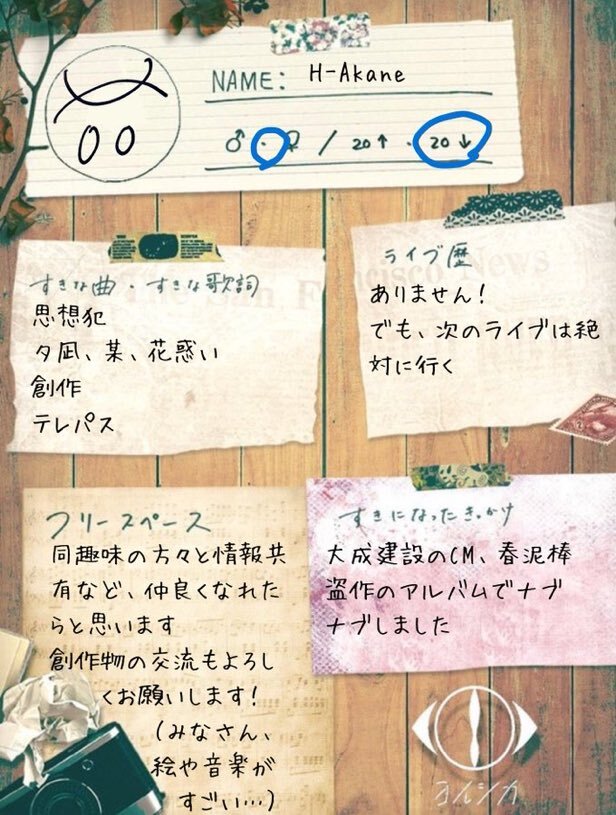 NAME: H-Akane
♂・♀ / 20↑・20↓
すきな曲・すきな歌詞
思想犯
夕凪、某、花惑い
創作
テレパス
ライブ歴
ありません!
でも、次のライブは絶
対に行く
フリースペース
同趣味の方々と情報共
有など、仲良くなれた
らと思います
創作物の交流もよろし
くお願いします!
(みなさん、
絵や音楽が
すごい…)
すきになったきっかけ
大成建設のCM、春泥棒
盗作のアルバムでナブ
ナブしました
ヨルシカ